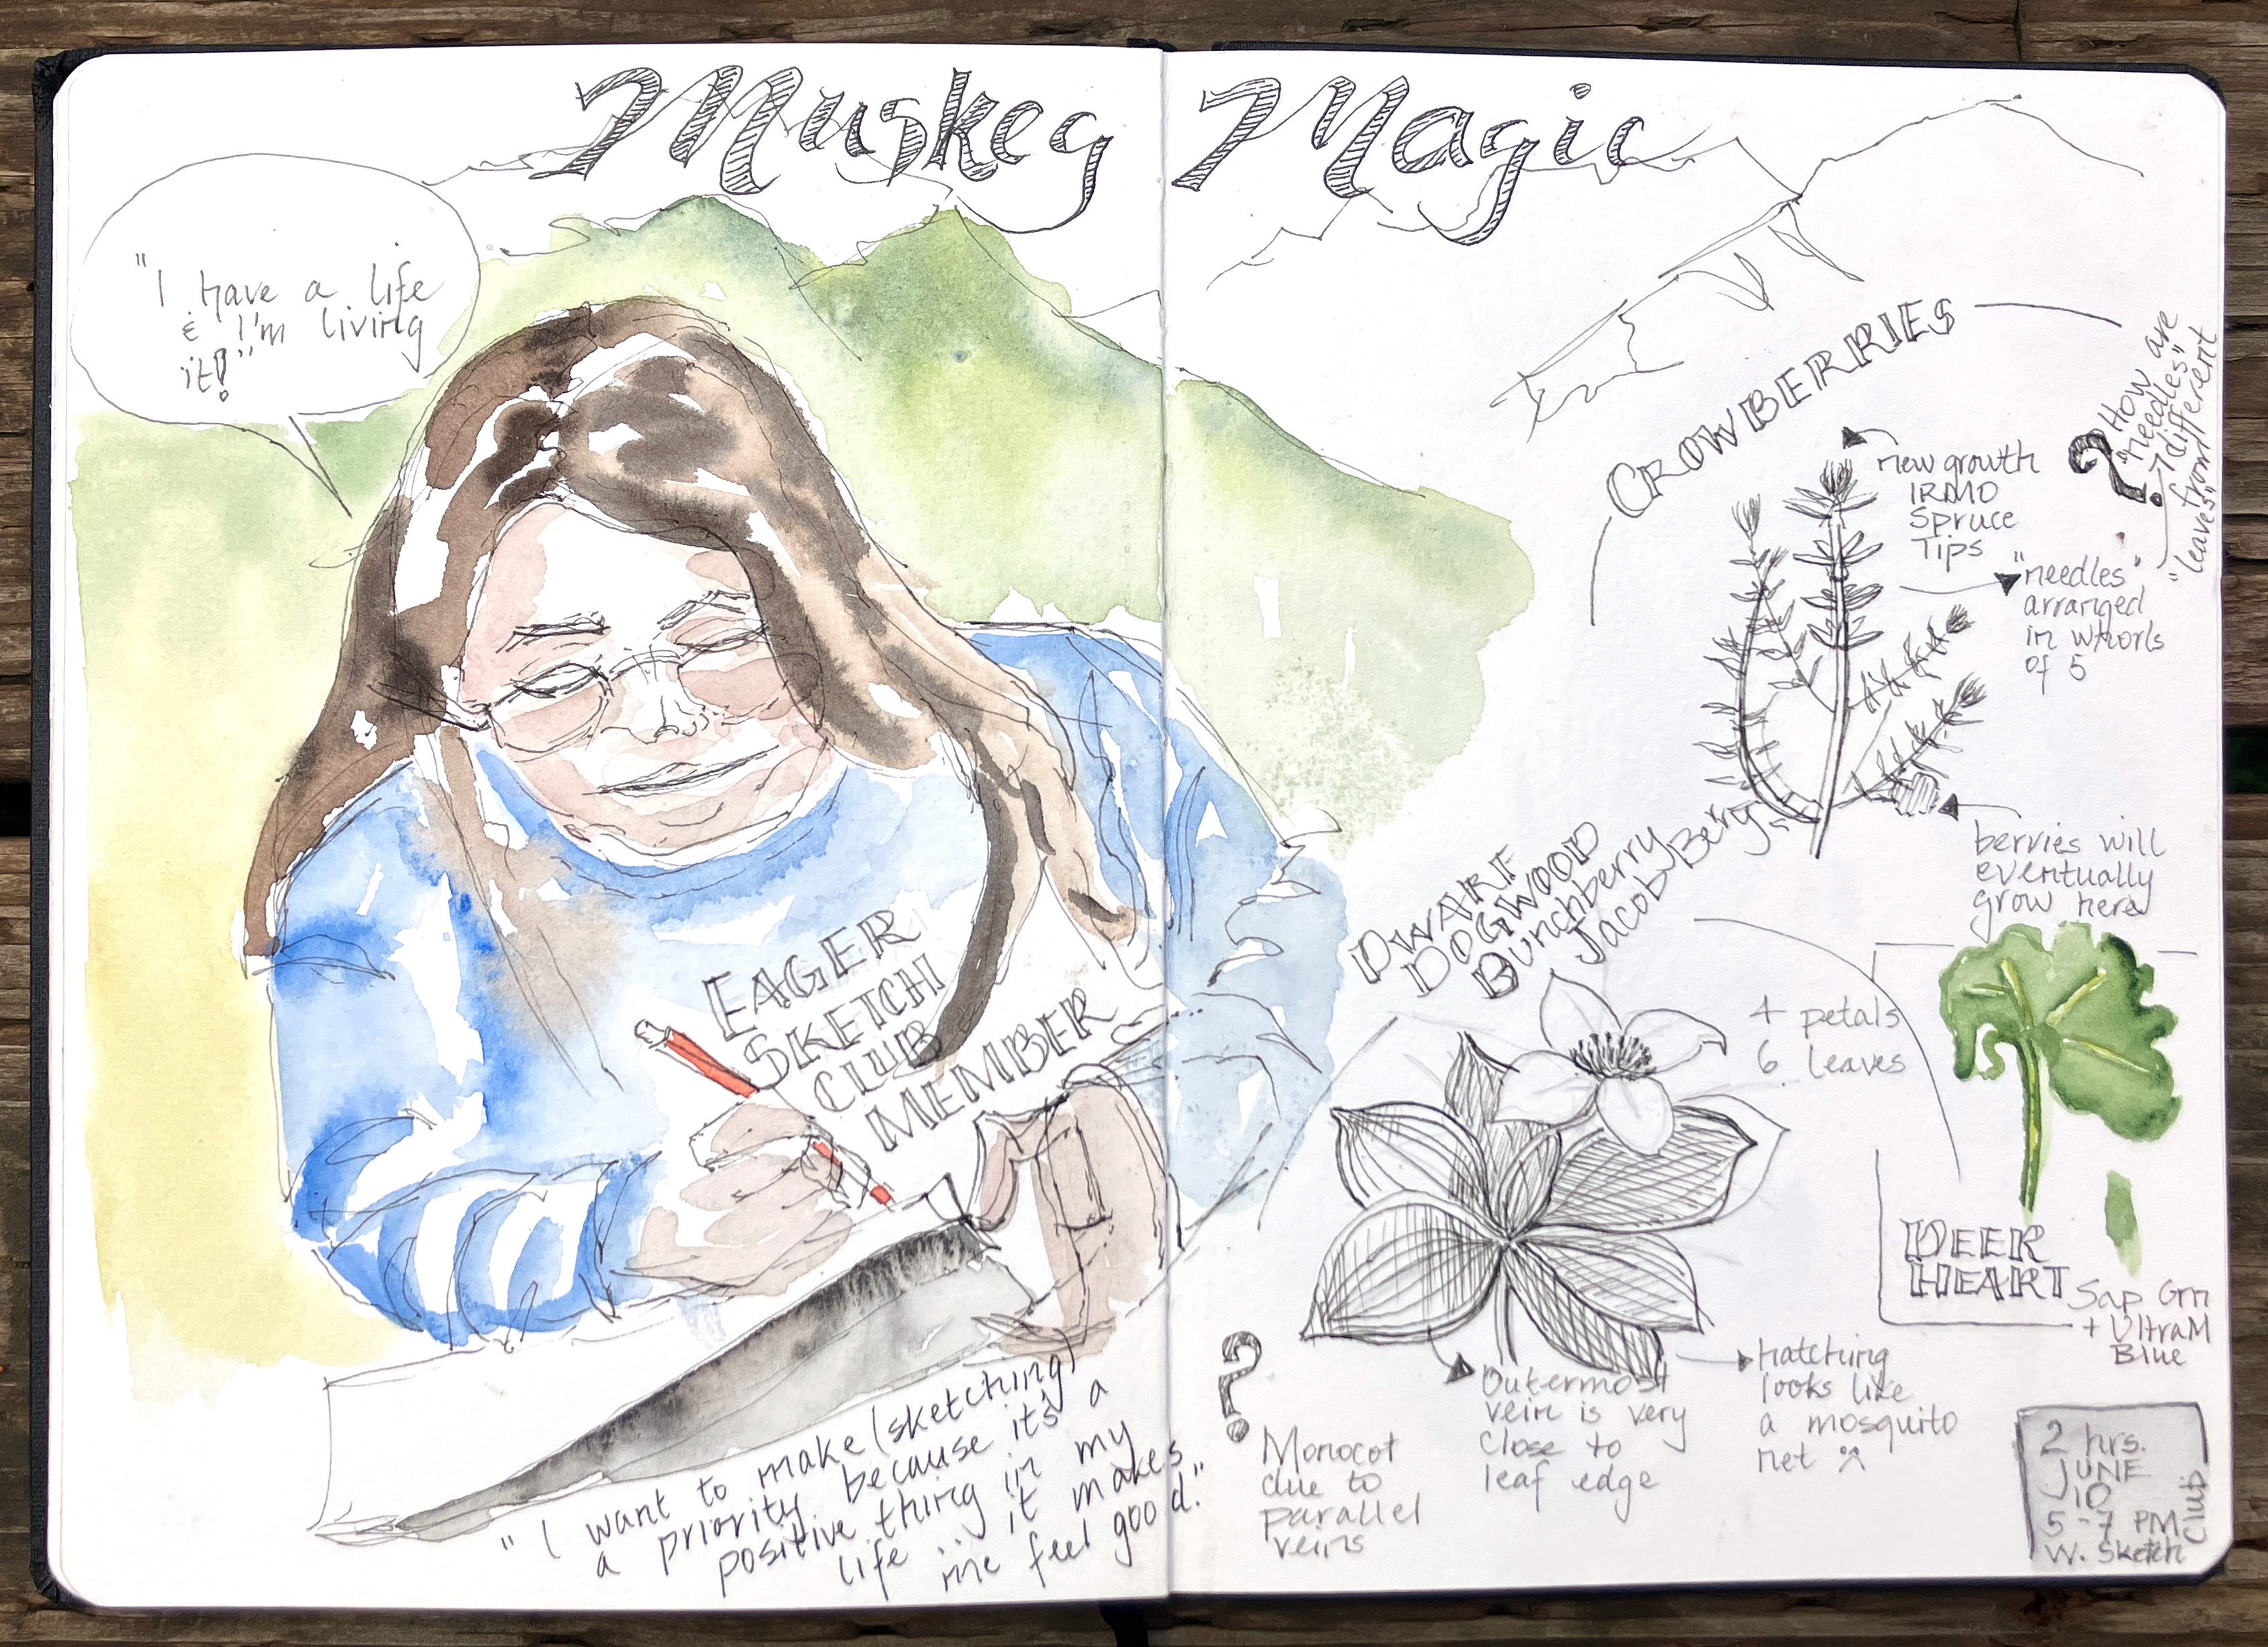 Muskeg Magic
"I have a life
& I'm living
it!"
EAGER
SKETCH
CLUB
MEMBER
"I want to make (sketching)
a priority because it's a
positive thing in my
life ... it makes
me feel good."
CROWBERRIES
new growth
IRMO
Spruce
Tips
? How are
"needles"
different
from
"leaves"
"needles"
arranged
in whorls
of 5
berries will
eventually
grow here
DWARF
DOGWOOD
Bunchberry
Jacob Berry
4 petals
6 leaves
DEER
HEART
Sap Grn
+ UltraM
Blue
? Monocot
due to
parallel
veins
Outermost
vein is very
close to
leaf edge
hatching
looks like
a mosquito
net
2 hrs.
JUNE
10
5-7 PM
W. Sketch
Club